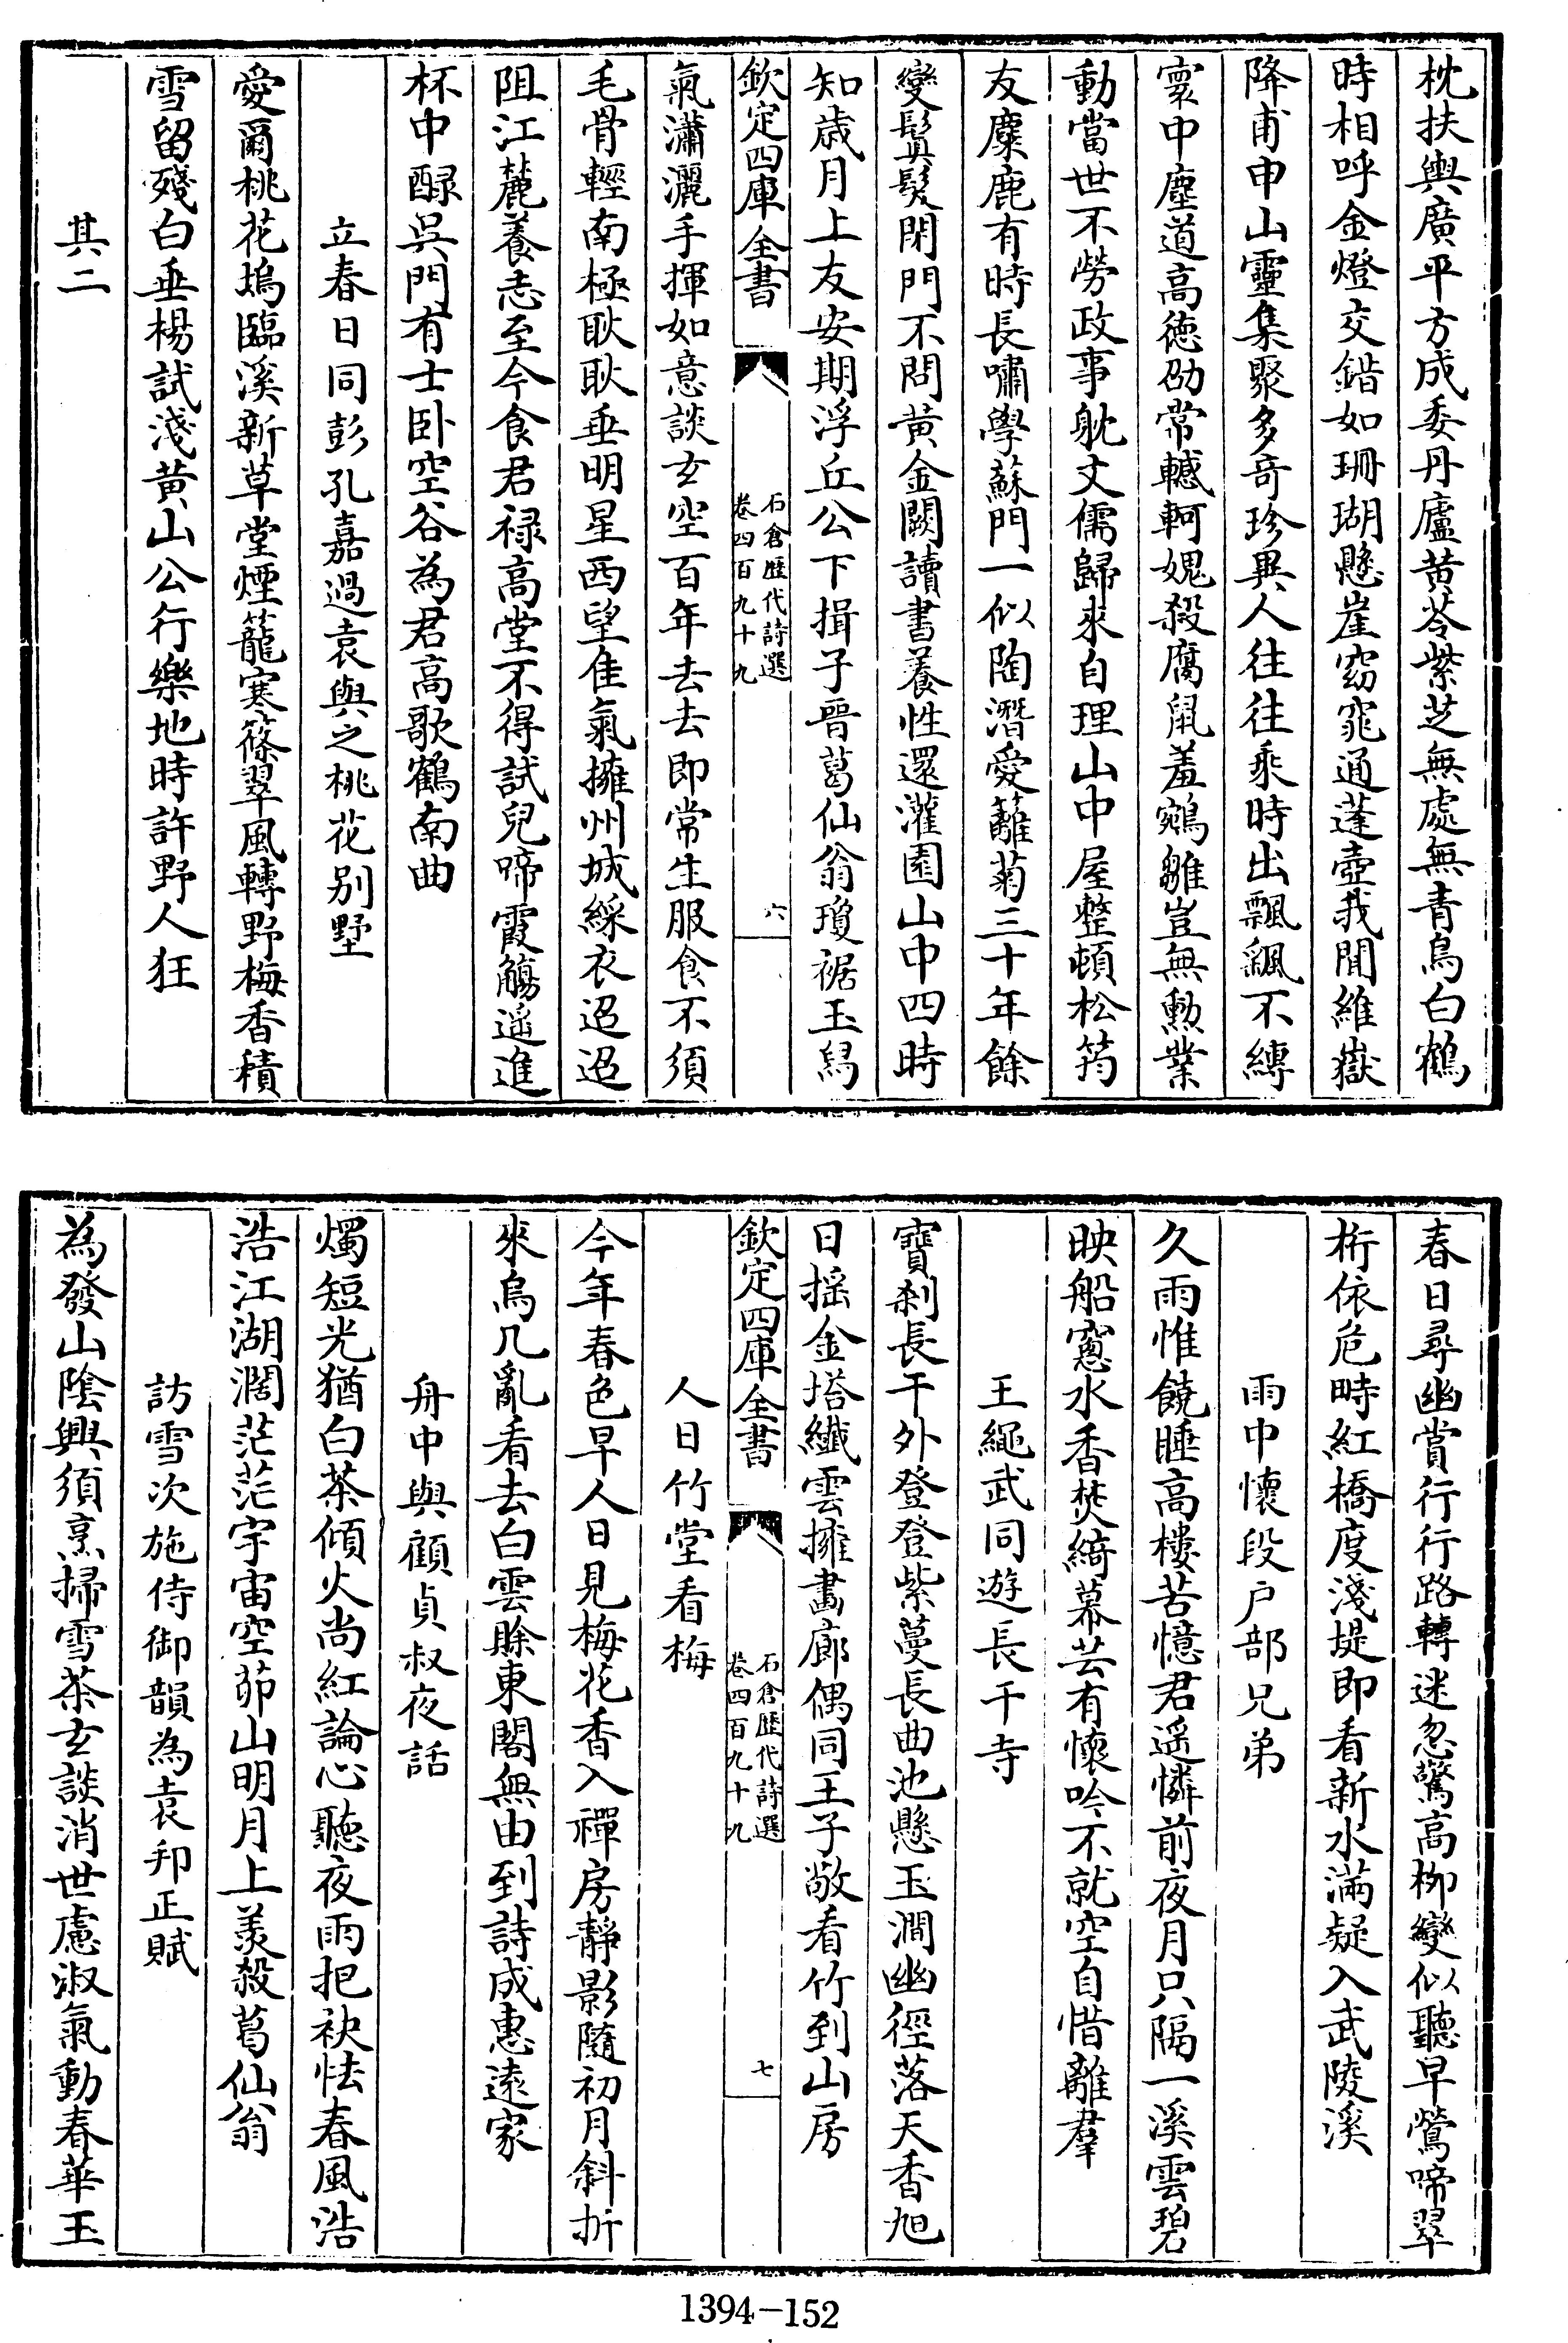 枕扶輿廣平方成委丹廬黄芩紫芝無處無青鳥白鶴
時相呼金燈交錯如珊瑚懸崖窈窕通蓬壺我聞維嶽
降甫申山靈集聚多竒珍異人往往乘時出飄飖不縛
寰中塵道高徳劭常轗軻媿殺腐䑕羞鵷雛豈無勲業
動當世不勞政事躭文儒歸來自理山中屋整頓松筠
友麋鹿有時長嘯學蘇門一似陶潛愛籬菊三十年餘
變鬒髮閉門不問黄金闕讀書養性還灌園山中四時
知歲月上友安期浮丘公下揖子晉葛仙翁瓊裾玉舄
欽定四庫全書
石倉歷代詩選
卷四百九十九
六
氣瀟灑手揮如意談玄空百年去去即常生服食不須
毛骨輕南極耿耿垂明星西望佳氣擁州城綵衣迢迢
阻江麓養志至今食君禄高堂不得試兒啼霞觴遥進
杯中醁吳門有士卧空谷為君高歌鶴南曲
立春日同彭孔嘉過袁與之桃花别墅
愛爾桃花塢臨溪新草堂煙籠寒篠翠風轉野梅香積
雪留殘白垂楊試淺黄山公行樂地時許野人狂
其二
春日尋幽賞行行路轉迷忽驚高栁變似聽早鶯啼翠
桁依危時紅橋度淺堤即看新水滿疑入武陵溪
雨中懷段户部兄弟
久雨惟饒睡高樓苦憶君遥憐前夜月只隔一溪雲碧
映船窻水香焚綺幕芸有懷吟不就空自惜離羣
王繩武同遊長干寺
寶剎長干外登登紫蔓長曲池懸玉澗幽徑落天香旭
日揺金塔纎雲擁畵廊偶同王子敞看竹到山房
欽定四庫全書
石倉歷代詩選
卷四百九十九
七
人日竹堂看梅
今年春色早人日見梅花香入禪房靜影隨初月斜折
來烏几亂看去白雲賖東閣無由到詩成惠逺家
舟中與顧貞叔夜話
燭短光猶白茶傾火尚紅論心聽夜雨把袂怯春風浩
浩江湖濶茫茫宇宙空茆山明月上羨殺葛仙翁
訪雪次施侍御韻為袁邦正賦
為發山隂興須烹掃雪茶玄談消世慮淑氣動春華玉
1394-152